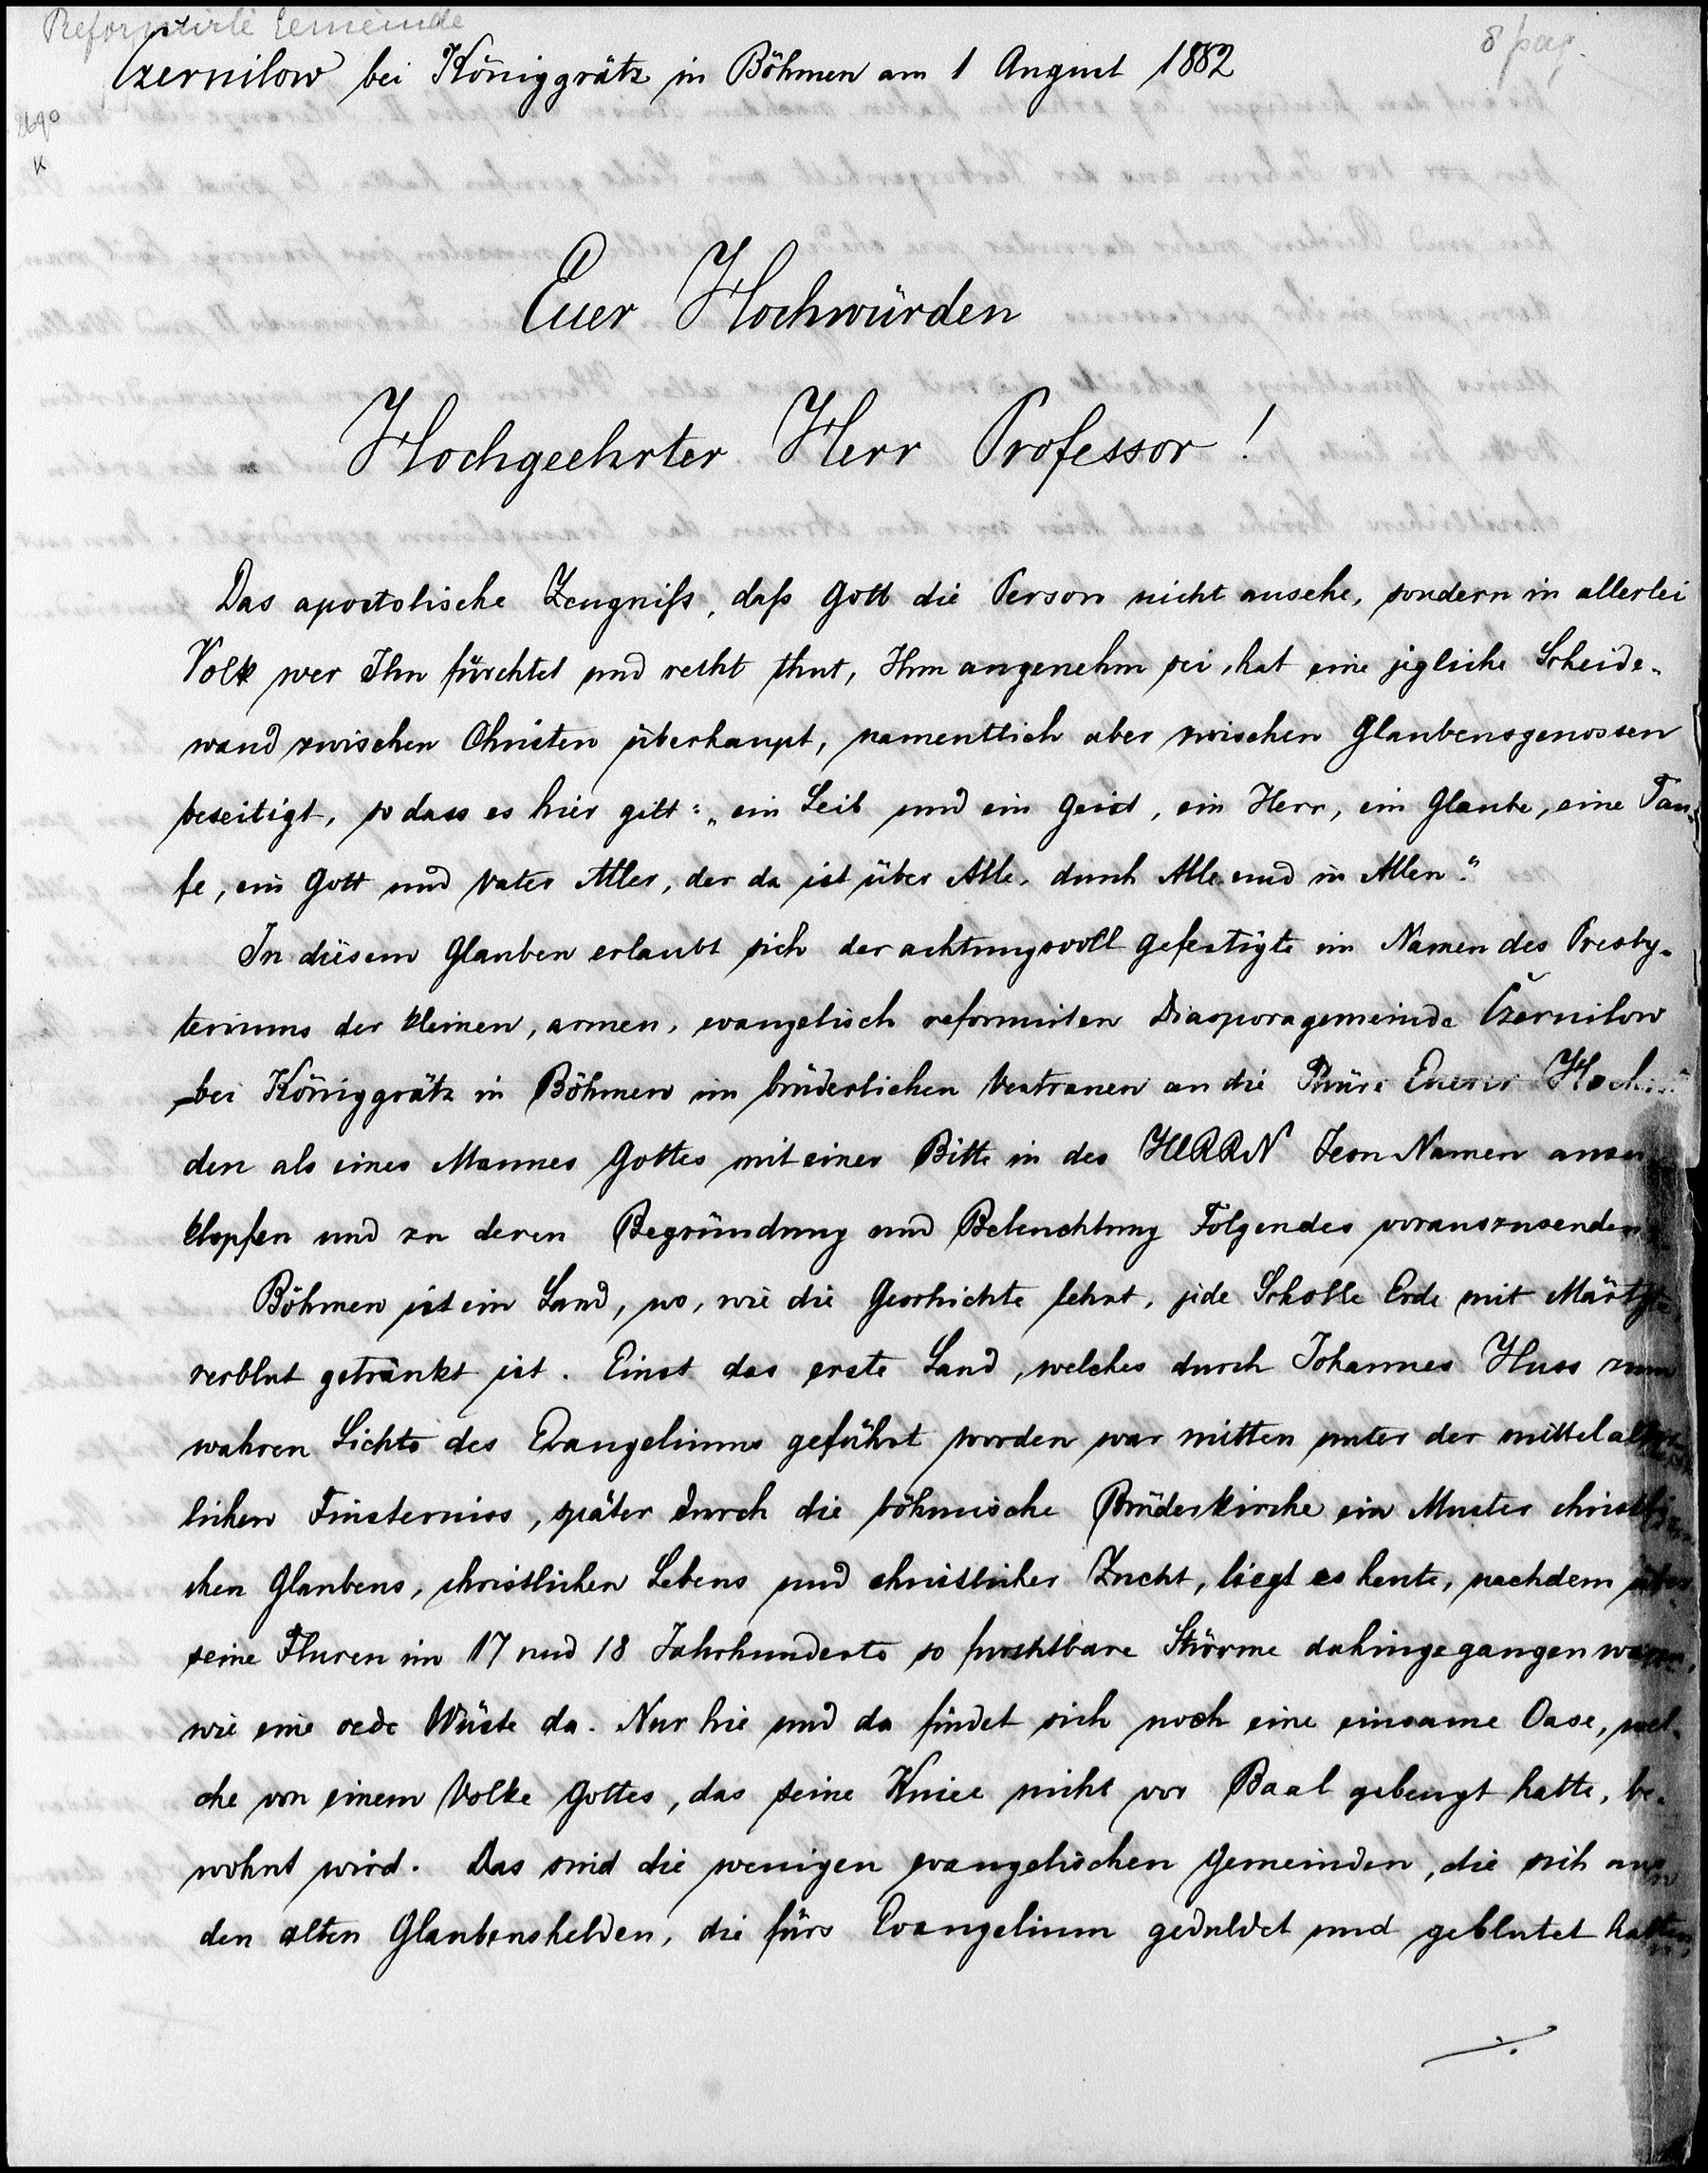 Reformirte Gemeinde
8 pag.
Czernilow bei Königgrätz in Böhmen am 1 August 1882
Euer Hochwürden
Hochgeehrter Herr Professor!
Das apostolische Zeugniß, daß Gott die Person nicht ansehe, sondern in allerlei
Volk wer Ihn fürchtet und recht thut, Ihm angenehm sei, hat eine jegliche Scheide-
wand zwischen Christen überhaupt, namentlich aber zwischen Glaubensgenossen
beseitigt, so dass es hier gilt: „ein Leib und ein Geist, ein Herr, ein Glaube, eine Tau-
fe, ein Gott und Vater Aller, der da ist über Alle, durch Alle und in Allen."
In diesem Glauben erlaubt sich der achtungsvoll Gefertigte im Namen des Presby-
teriums der kleinen, armen, evangelisch reformirten Diasporagemeinde Czernilow
bei Königgrätz in Böhmen im brüderlichen Vertrauen an die Thüre Euerer Hochwü
den als eines Mannes Gottes mit einer Bitte in des HERRN Jesu Namen anzu
klopfen und zu deren Begründung und Beleuchtung Folgendes vorauszusenden
Böhmen ist ein Land, wo, wie die Geschichte lehrt, jede Scholle Erde mit Märty
rerblut getränkt ist. Einst das erste Land, welches durch Johannes Huss zum
wahren Lichte des Evangeliums geführt worden war mitten unter der mittelalter-
lichen Finsterniss, später durch die böhmische Brüderkirche ein Muster christli-
chen Glaubens, christlichen Lebens und christlicher Zucht, liegt es heute, nachdem über
seine Fluren im 17 und 18 Jahrhunderte so furchtbare Stürme dahingegangen waren,
wie eine oede Wüste da. Nur hie und da findet sich noch eine einsame Oase, wel-
che von einem Volke Gottes, das seine Kniee nicht vor Baal gebeugt hatte, be-
wohnt wird. Das sind die wenigen evangelischen Gemeinden, die sich aus
den alten Glaubenshelden, die fürs Evangelium geduldet und geblutet hatten,